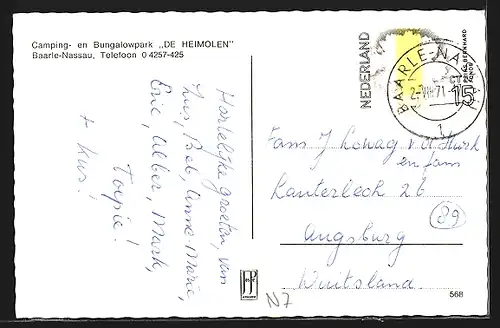 Camping- en Bungalowpark „DE HEIMOLEN"
Baarle-Nassau, Telefoon 0 4257-425
Hartelijke groeten, van
Luis, Bob, Anne Marie,
Eric, Alber, Mark,
Toepie!
+ kus!
NEDERLAND
15 CT
PRINS BERNHARD FONDS
BAARLE-NASSAU
2-VIII 71
1
Fam J Lowag v d
en fam
Lauterlech 26
(89)
Augsburg
Duitsland.
568
N7